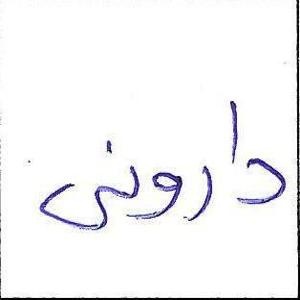 دارونی